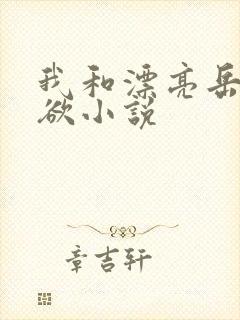 我和漂亮岳
欲小说
章吉轩